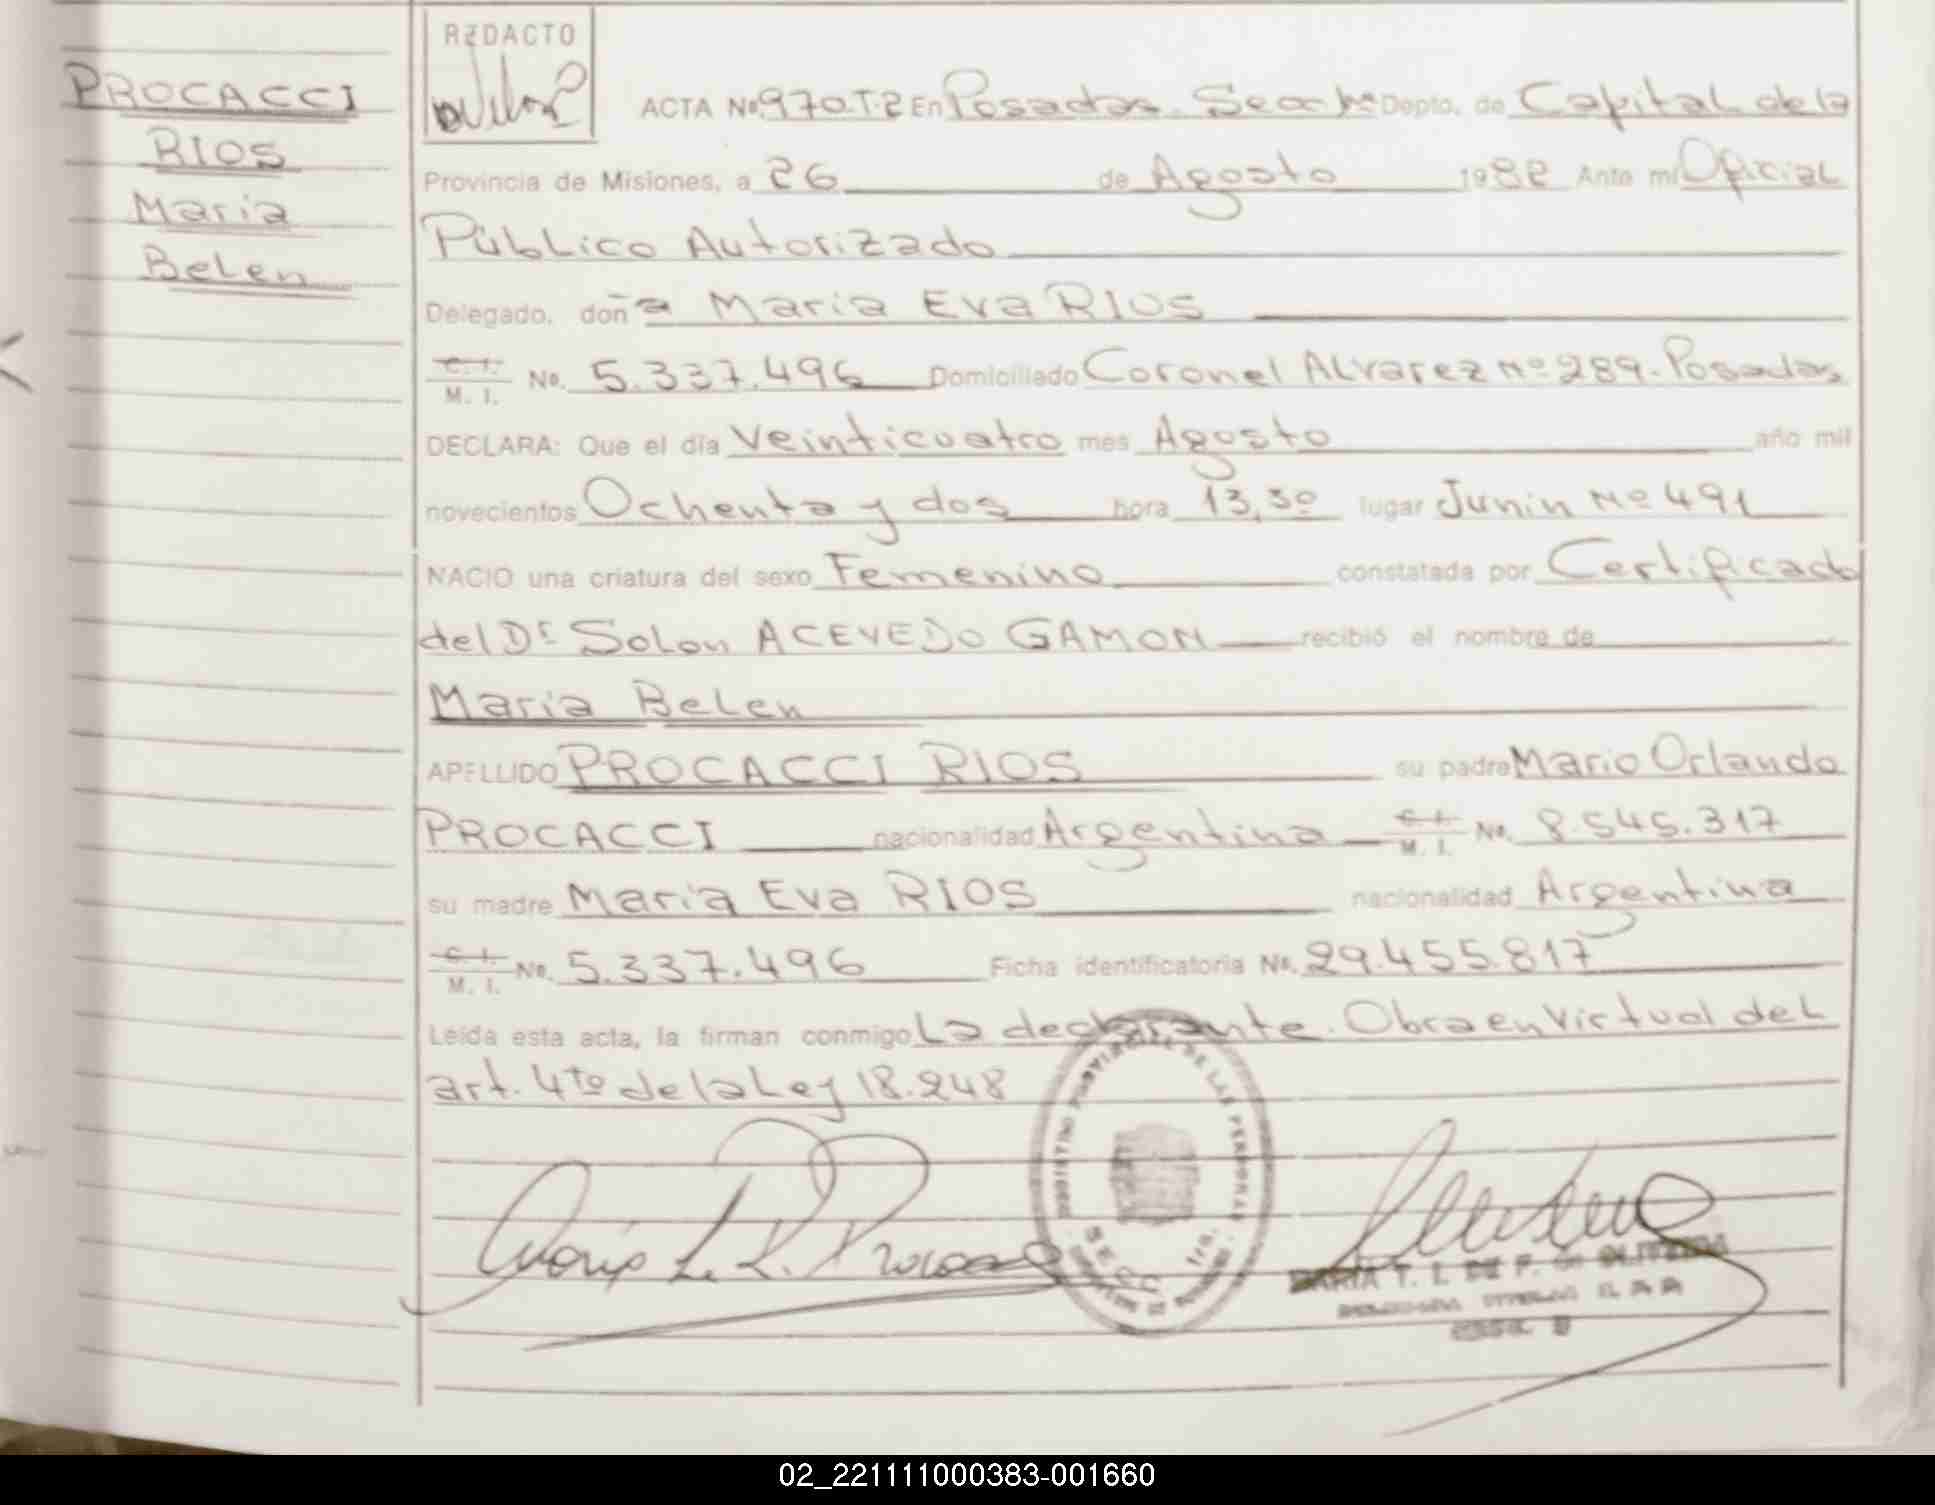 PROCACCI
RIOS
Maria
Belen
REDACTO
ACTA No. 970.T.2 En Posadas. Secc 1ra Depto. de Capital de la
Provincia de Misiones, a 26 de Agosto 1982 Ante mí Oficial
Público Autorizado
Delegado, doña Maria Eva RIOS
C. I. M. I. No. 5.337.496 Domiciliado Coronel Alvarez Nº 289. Posadas
DECLARA: Que el día Veinticuatro mes Agosto año mil
novecientos Ochenta y dos hora 13,30 lugar Junin Nº 491
NACIO una criatura del sexo Femenino constatada por Certificado
del Dr Solon ACEVEDO GAMON recibió el nombre de
Maria Belen
APELLIDO PROCACCI RIOS su padre Mario Orlando
PROCACCI nacionalidad Argentina C. I. M. I. No. 8.545.317
su madre Maria Eva RIOS nacionalidad Argentina
C. I. M. I. No. 5.337.496 Ficha identificatoria No. 29.455.817
Leída esta acta, la firman conmigo La declarante. Obra en Virtud del
art. 4to de la Ley 18.248
REGISTRO PROVINCIAL DE LAS PERSONAS
SECC. 1ra.
MARIA T. I. DE F. de OLIVEIRA
02_221111000383-001660